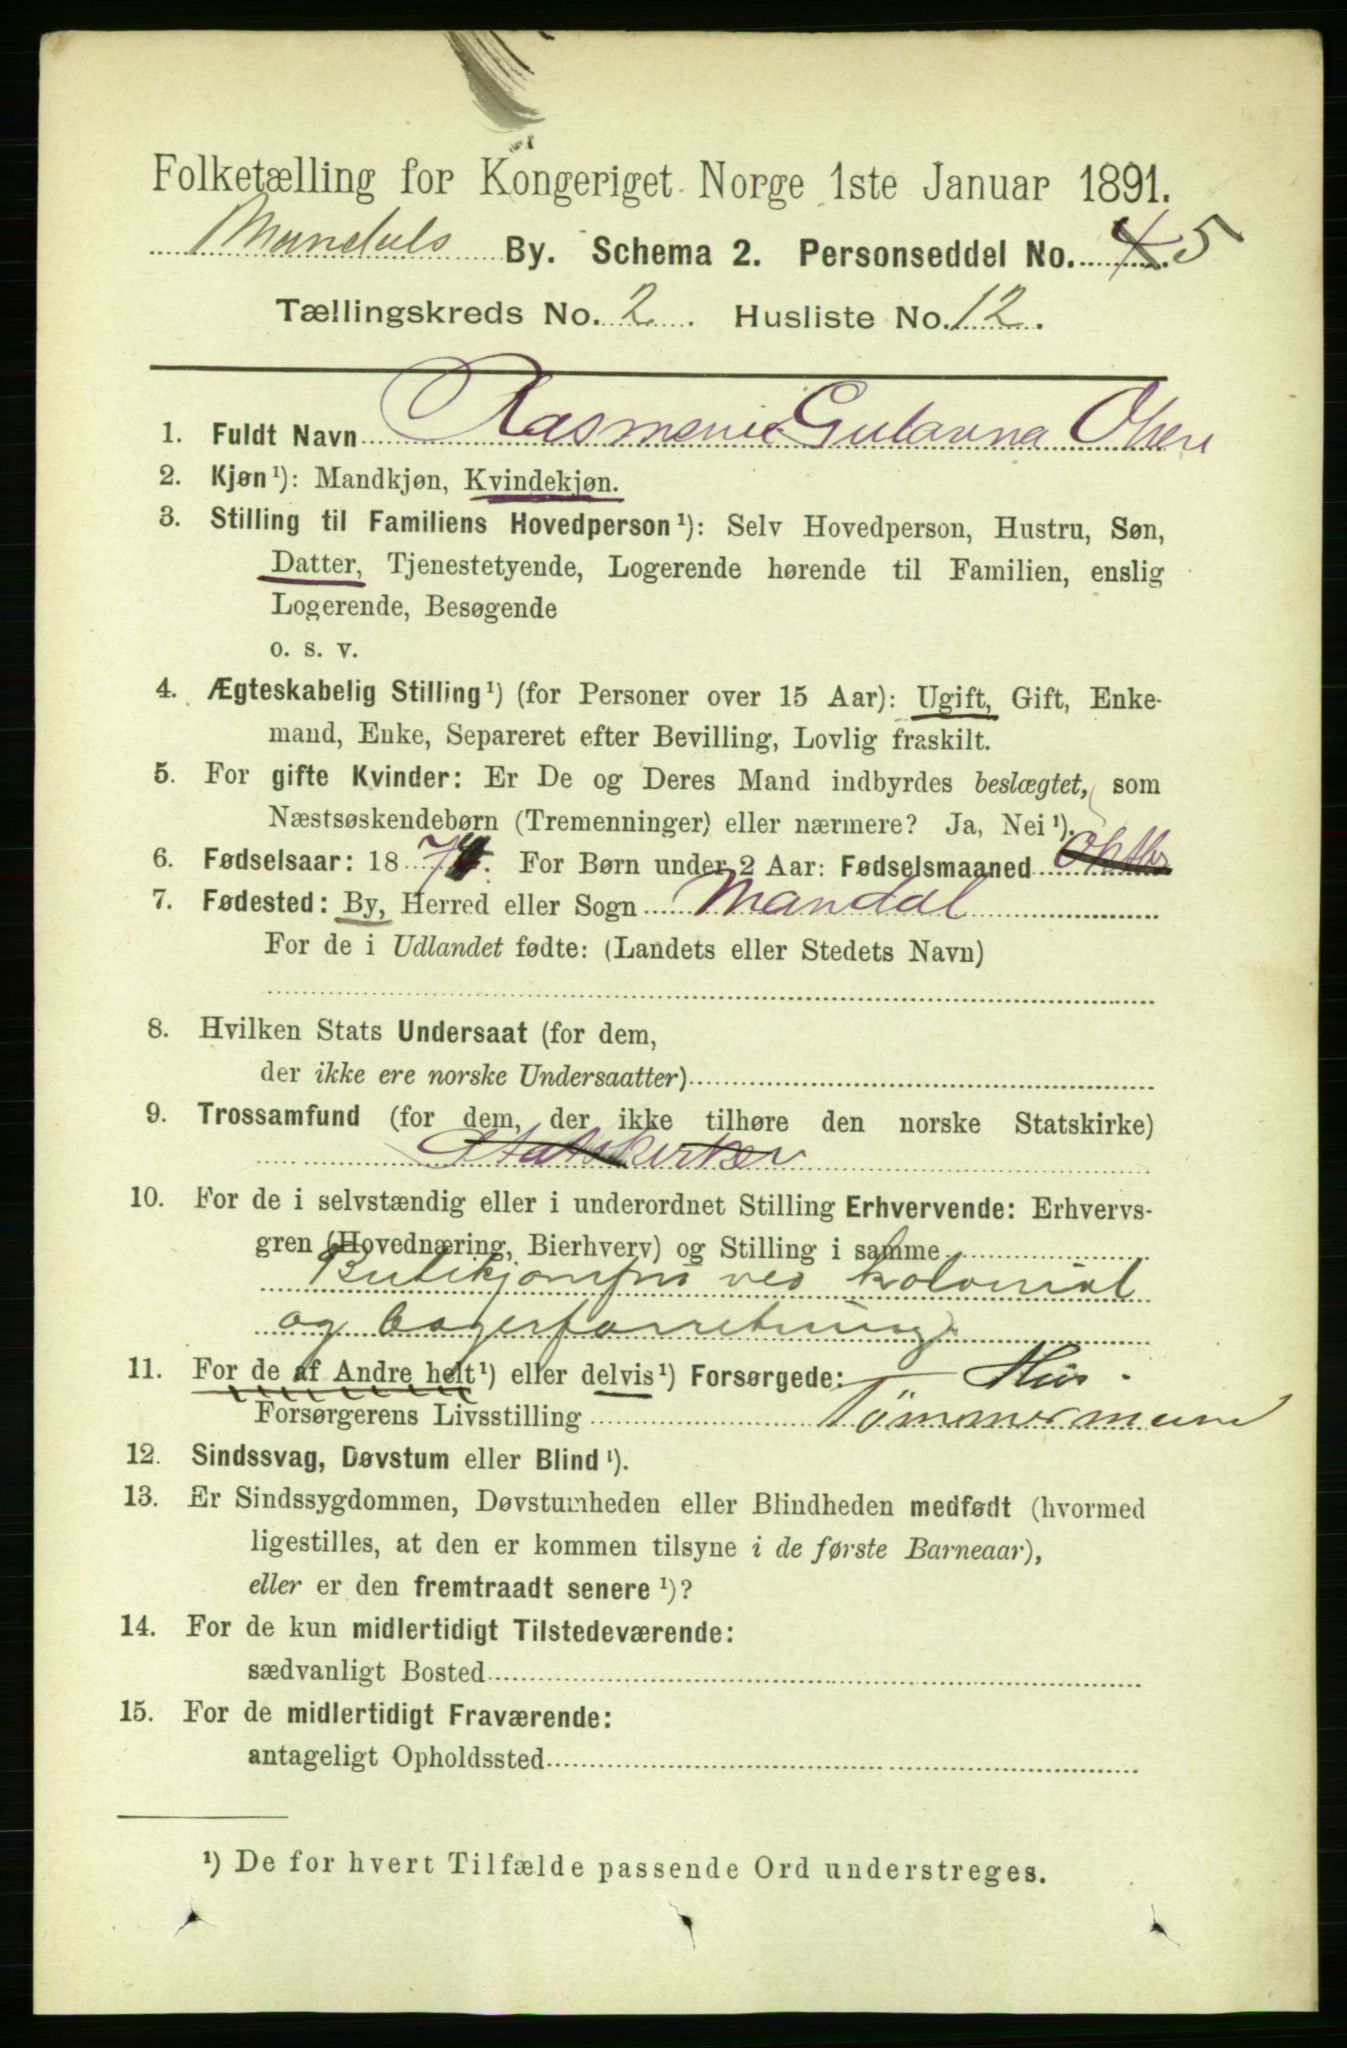 Folketælling for Kongeriget Norge 1ste Januar 1891.
Mandals By. Schema 2. Personseddel No. 4 5
Tællingskreds No. 2. Husliste No. 12.
1. Fuldt Navn Rasmene Gulanna Olsen
2. Kjøn¹): Mandkjøn, Kvindekjøn.
3. Stilling til Familiens Hovedperson¹): Selv Hovedperson, Hustru, Søn,
Datter, Tjenestetyende, Logerende hørende til Familien, enslig
Logerende, Besøgende
o. s. v.
4. Ægteskabelig Stilling¹) (for Personer over 15 Aar): Ugift, Gift, Enke-
mand, Enke, Separeret efter Bevilling, Lovlig fraskilt.
5. For gifte Kvinder: Er De og Deres Mand indbyrdes beslægtet, som
Næstsøskendebørn (Tremenninger) eller nærmere? Ja, Nei¹).
6. Fødselsaar: 1874. For Børn under 2 Aar: Fødselsmaaned
7. Fødested: By, Herred eller Sogn Mandal
For de i Udlandet fødte: (Landets eller Stedets Navn)
8. Hvilken Stats Undersaat (for dem,
der ikke ere norske Undersaatter)
9. Trossamfund (for dem, der ikke tilhøre den norske Statskirke)
Statskirken
10. For de i selvstændig eller i underordnet Stilling Erhvervende: Erhvervs-
gren (Hovednæring, Bierhverv) og Stilling i samme
Butikjomfru ved kolonial
og bagerforretning
11. For de af Andre helt¹) eller delvis¹) Forsørgede: Hus.
Forsørgerens Livsstilling Tömmermand
12. Sindssvag, Døvstum eller Blind¹).
13. Er Sindssygdommen, Døvstumheden eller Blindheden medfødt (hvormed
ligestilles, at den er kommen tilsyne i de første Barneaar),
eller er den fremtraadt senere¹)?
14. For de kun midlertidigt Tilstedeværende:
sædvanligt Bosted
15. For de midlertidigt Fraværende:
antageligt Opholdssted
¹) De for hvert Tilfælde passende Ord understreges.